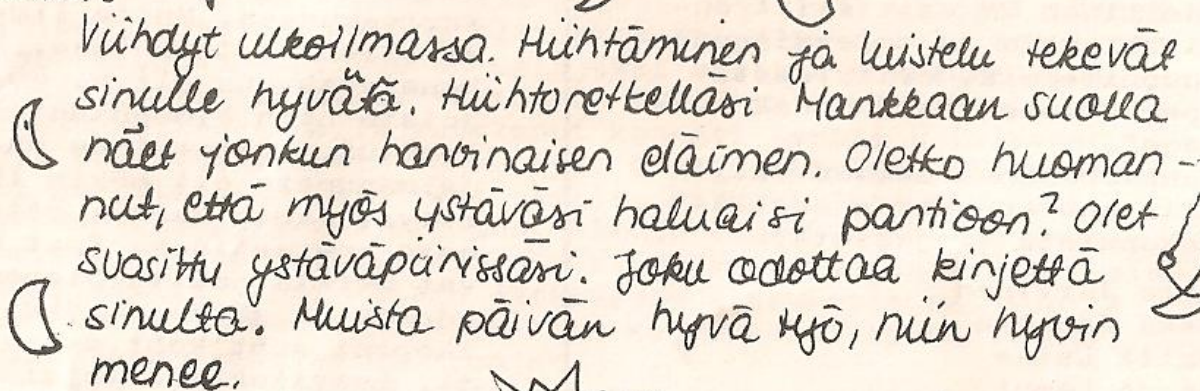 Viihdyt ulkoilmassa. Hiihtäminen ja luistelu tekevät
sinulle hyvää. Hiihtoretkelläsi Mankkaan suolla
näet jonkun harvinaisen eläimen. Oletko huoman-
nut, että myös ystäväsi haluaisi partioon? Olet
suosittu ystäväpiirissäsi. Joku odottaa kirjettä
sinulta. Muista päivän hyvä työ, niin hyvin
menee.